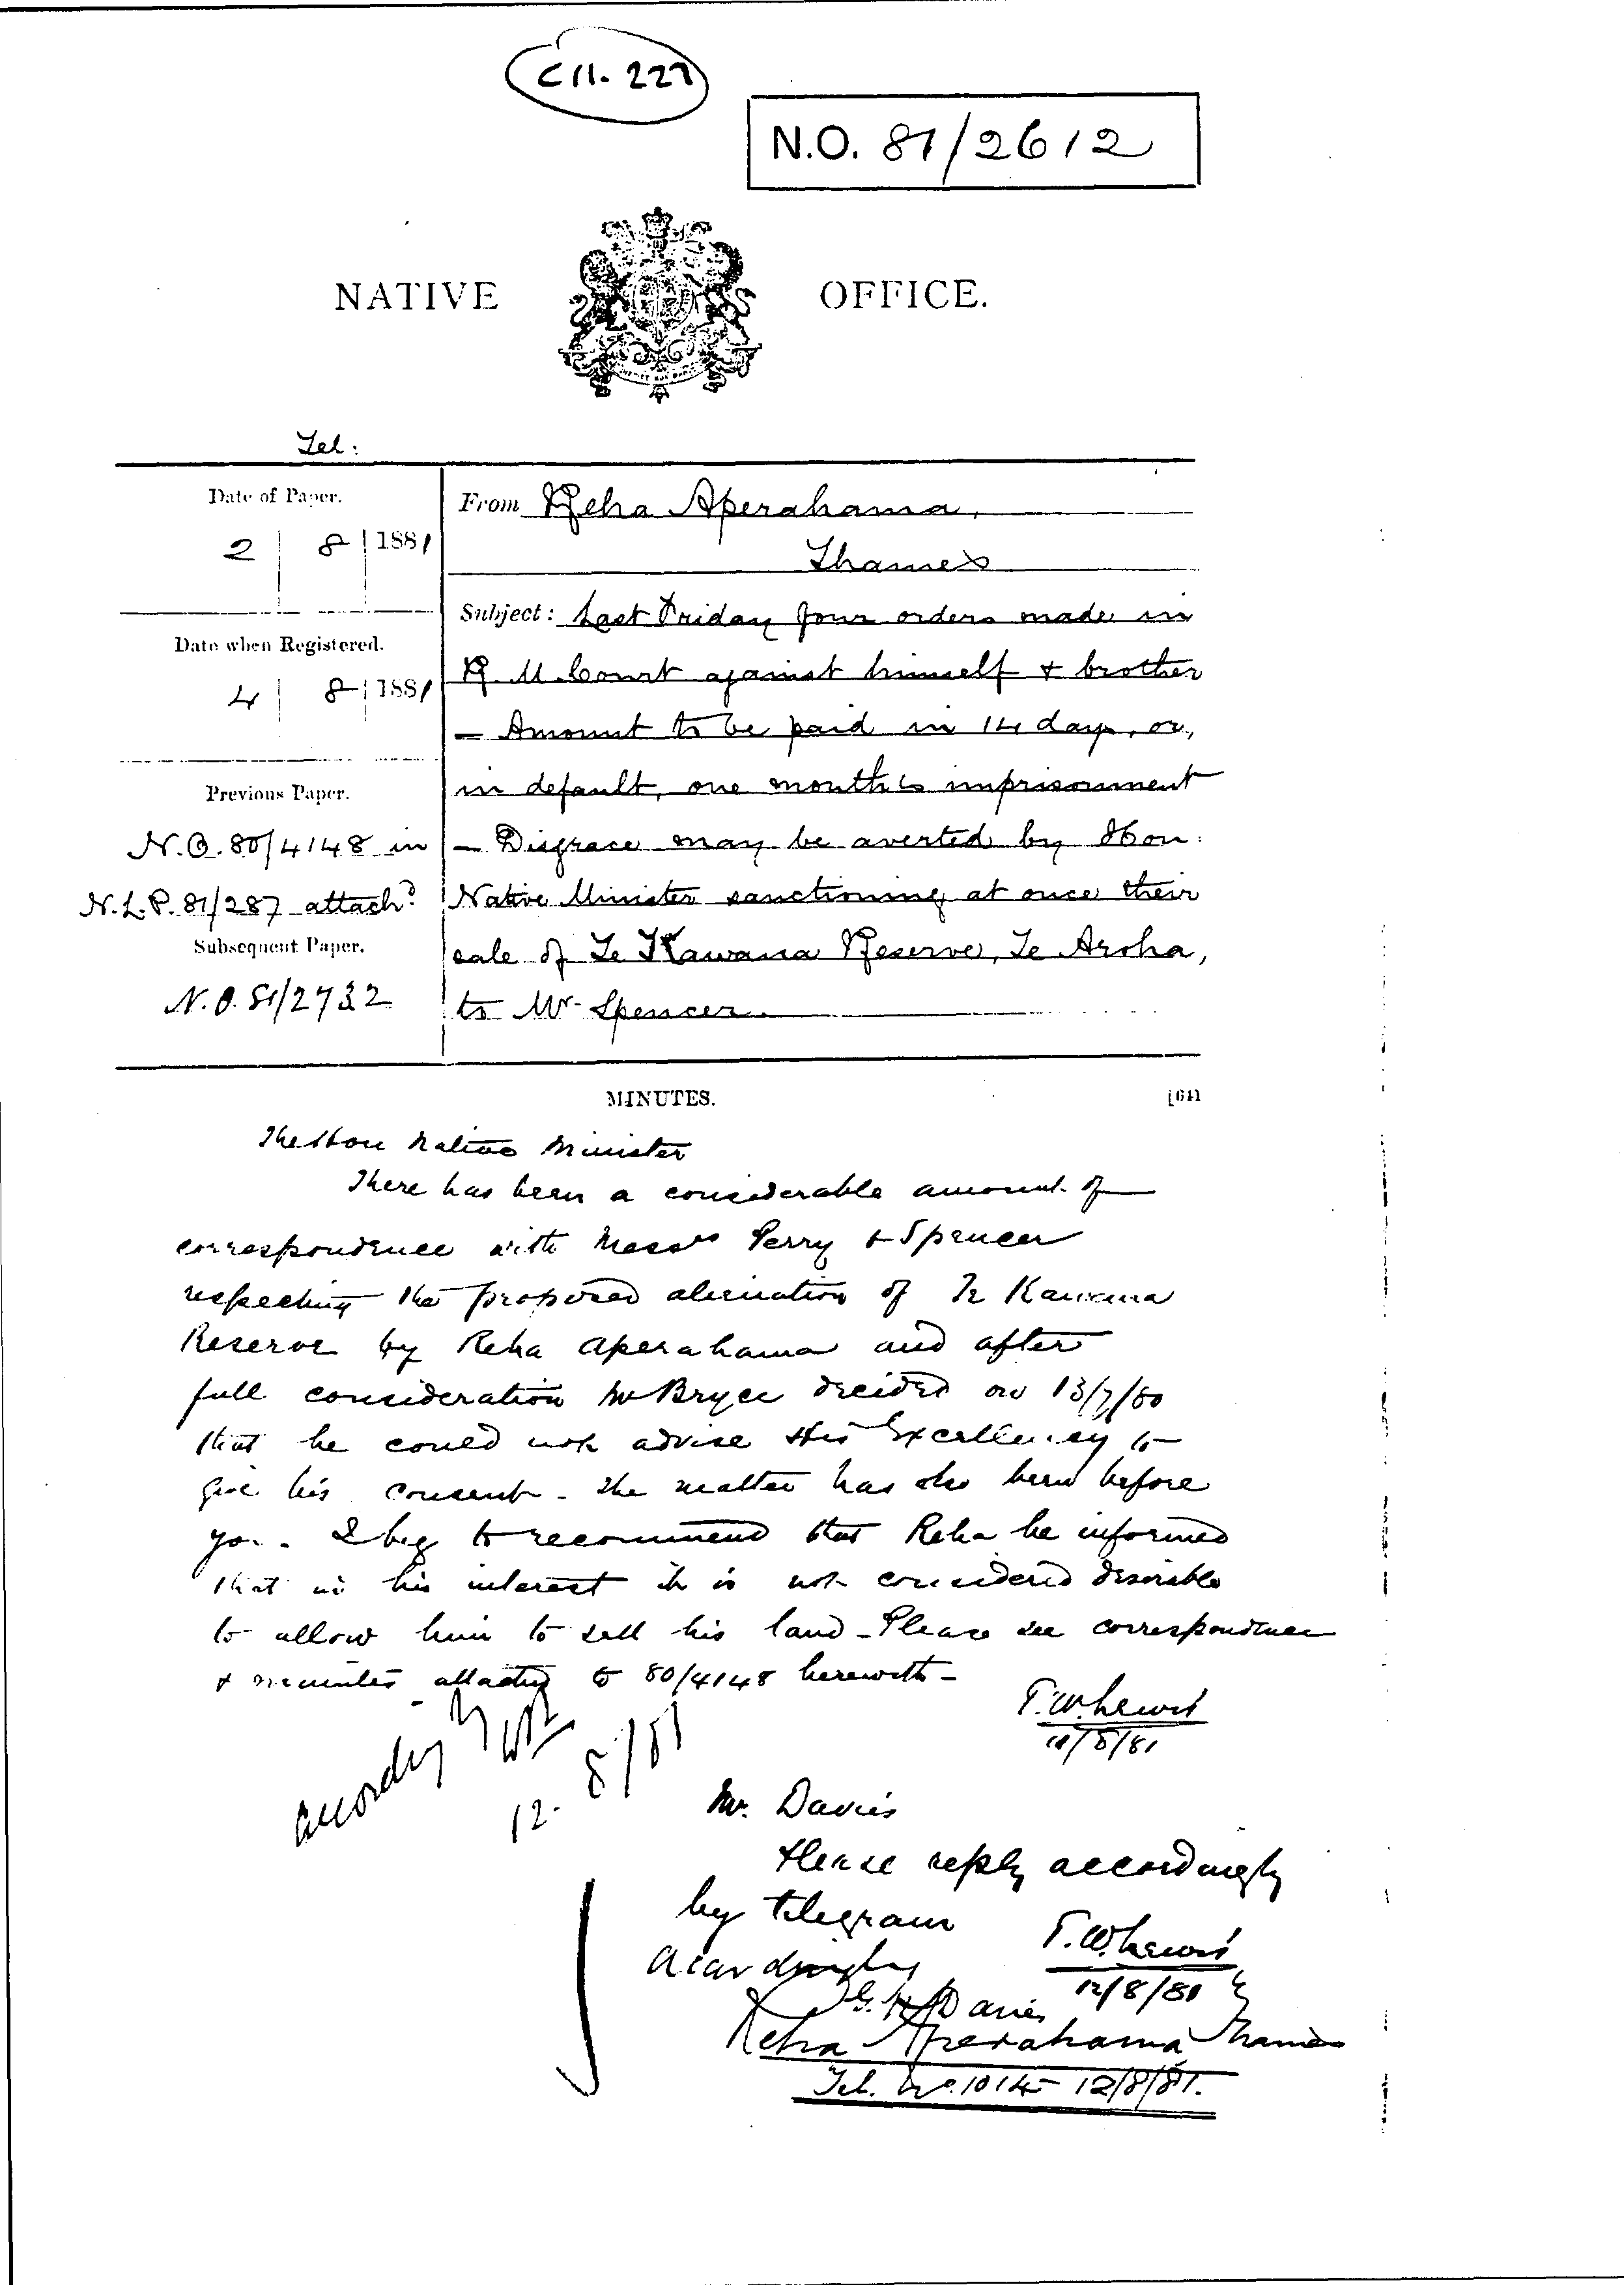 C11. 227
N.O. 81/2612
NATIVE OFFICE.
Tel:
Date of Paper.
2 8 1881
Date when Registered.
4 8 1881
Previous Paper.
N.O. 80/4148 in
N.L.P. 81/287 attachd
Subsequent Paper.
N.O. 81/2732
From Reha Aperahama,
Thames
Subject: Last Friday four orders made in
R. M. Court against himself & brother
— Amount to be paid in 14 days, or,
in default, one month's imprisonment
— Disgrace may be averted by Hon:
Native Minister sanctioning at once their
sale of Te Kawana Reserve, Te Aroha,
to Mr Spencer.
MINUTES. [64]
The Hon Native Minister
There has been a considerable amount of
correspondence with Messrs Perry & Spencer
respecting the proposed alienation of Te Kawana
Reserve by Reha Aperahama and after
full consideration Mr Bryce decided on 13/7/80
that he could not advise His Excellency to
give his consent - The matter has also been before
you. I beg to recommend that Reha be informed
that in his interest it is not considered desirable
to allow him to sell his land - Please see correspondence
& minutes attached to 80/4148 herewith -
T.W. Lewis
11/8/81
Accordingly
12. 8/81
Mr. Davies
Please reply accordingly
by telegram
T.W. Lewis
12/8/81
Accordingly
G. H. Davies
Reha Aperahama Thames
Tel. No. 1014 12/8/81.